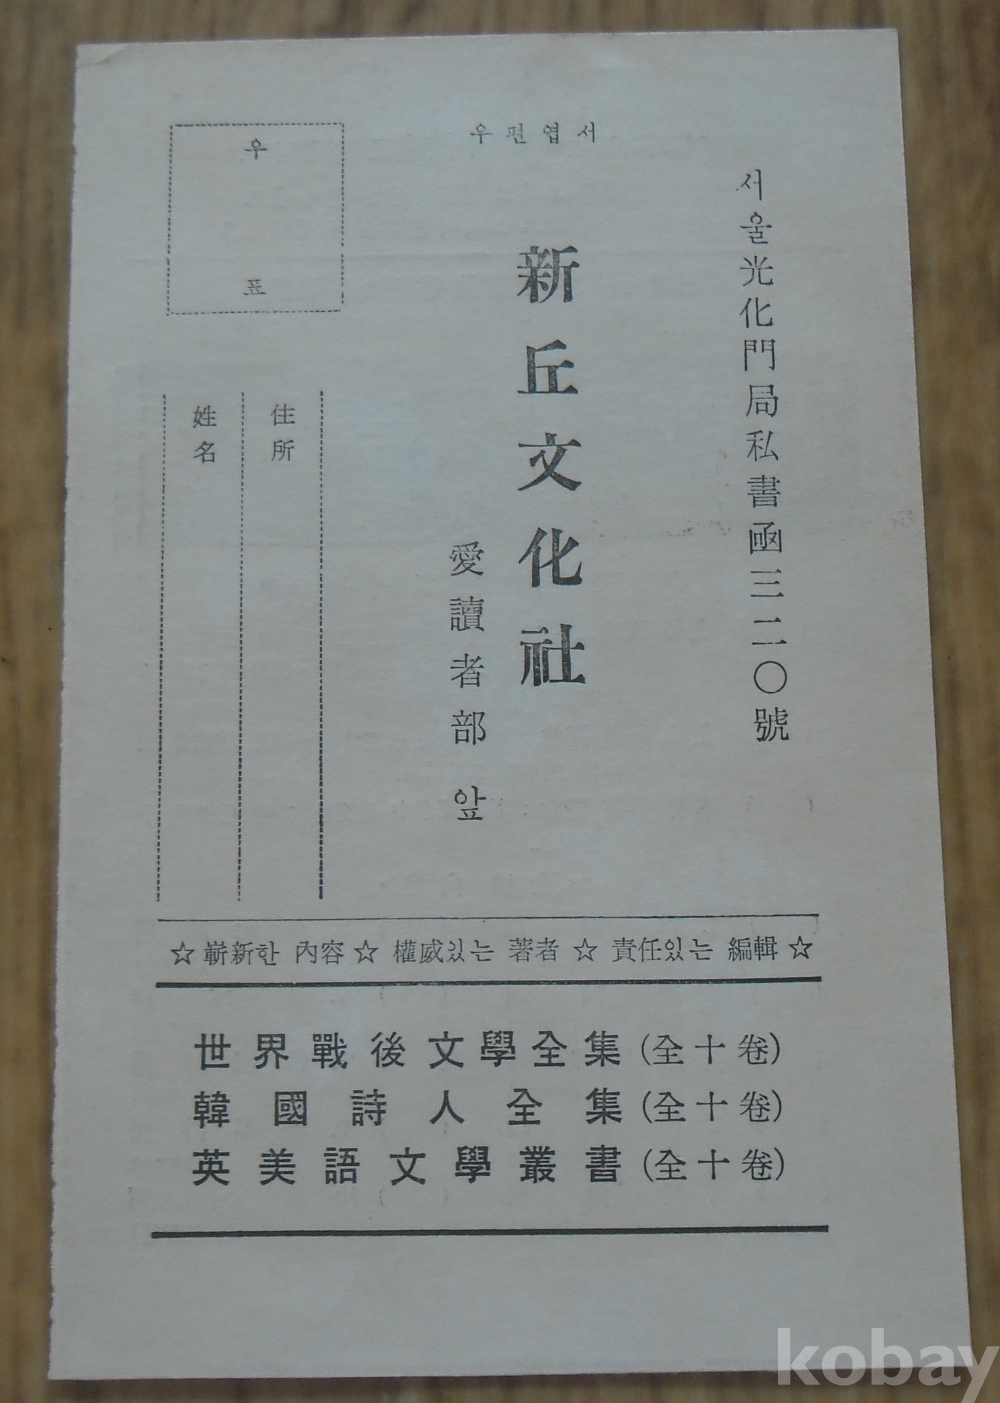 우편엽서
서울光化門局私書函三二〇號
新丘文化社
愛讀者部 앞
우표
住所
姓名
☆ 嶄新한 內容 ☆ 權威있는 著者 ☆ 責任있는 編輯 ☆
世界戰後文學全集 (全十卷)
韓國詩人全集 (全十卷)
英美語文學叢書 (全十卷)
kobay